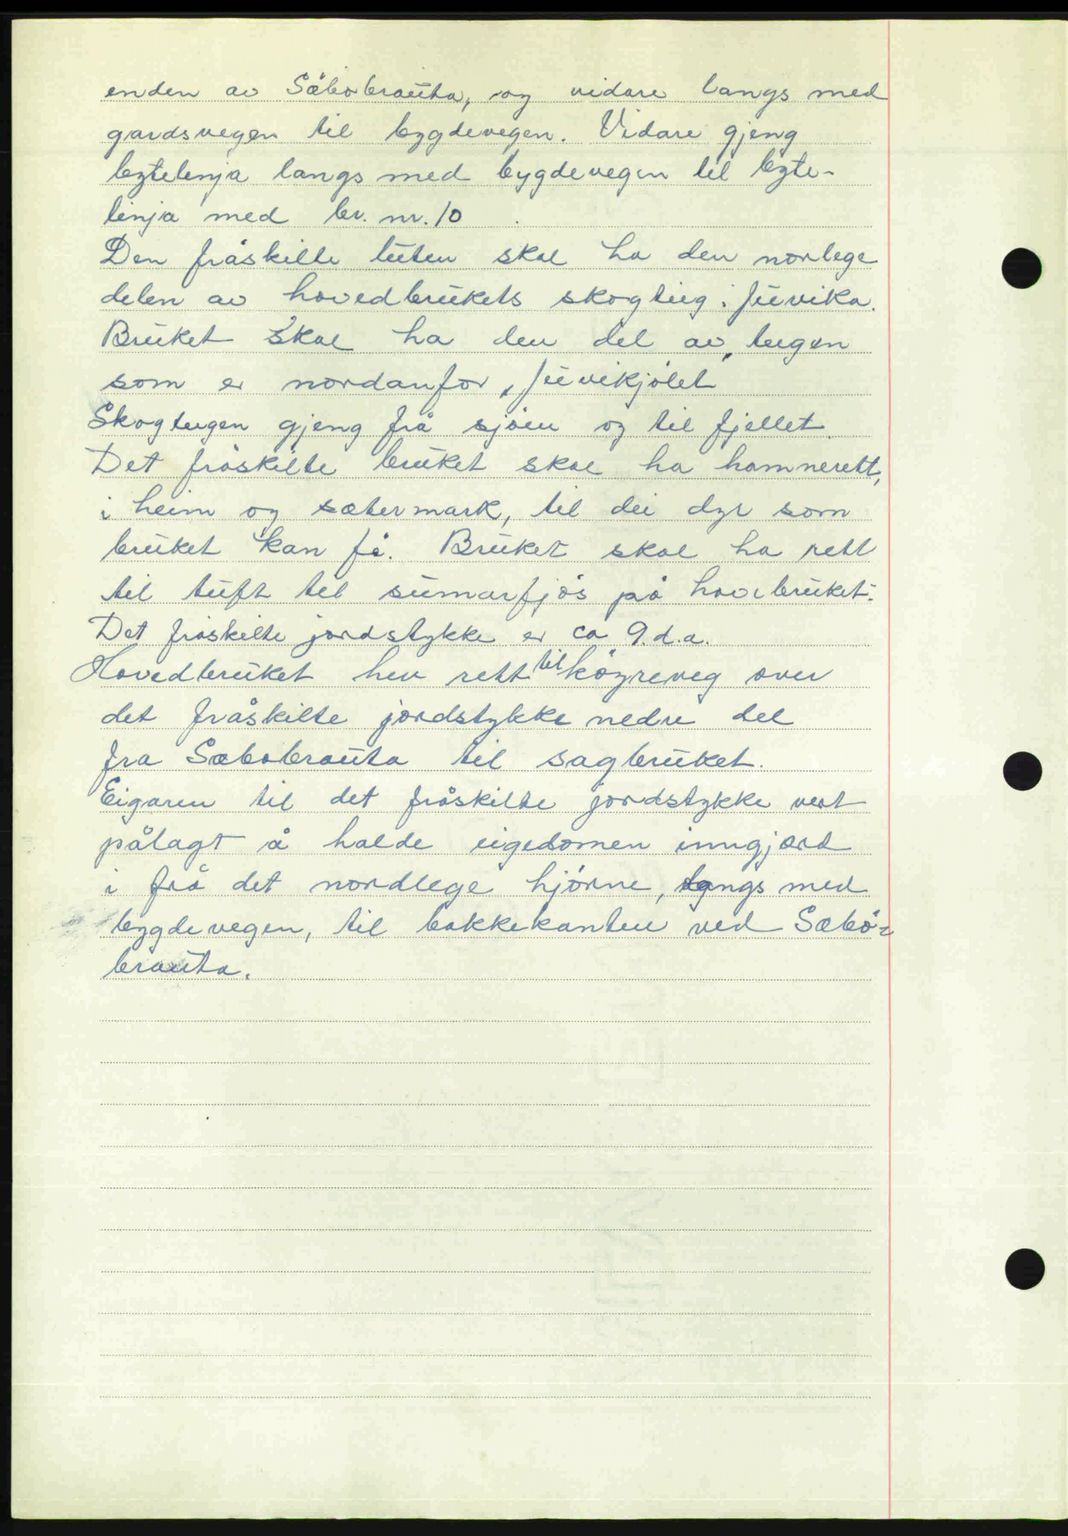 enden av Säbobrauta, og vidare langs med
gardsvegen til bygdevegen. Vidare gjeng
bytelinja langs med bygdevegen til byte-
linja med br. nr. 10
Den fråskilte luten skal ha den norlege
delen av hovedbrukets skogteig i Juvika.
Bruket skal ha den del av teigen
som er nordanfor „Juvikjölet"
Skogteigen gjeng frå sjöen og til fjellet.
Det fråskilte bruket skal ha hamnerett,
i heim og sætermark, til dei dyr som
bruket kan fö. Bruket skal ha rett
til tuft til sumarfjös på hovebruket.
Det fråskilte jordstykke er ca 9. d.a.
Hovedbruket hev rett til köyreveg over
det fråskilte jordstykke nedre del
fra Sæbobrauta til sagbruket.
Eigaren til det fråskilte jordstykke vert
pålagt å halde eigedomen inngjærd
i frå det nordlege hjörne, langs med
bygdevegen, til bakkekanten ved Sæbö-
brauta.